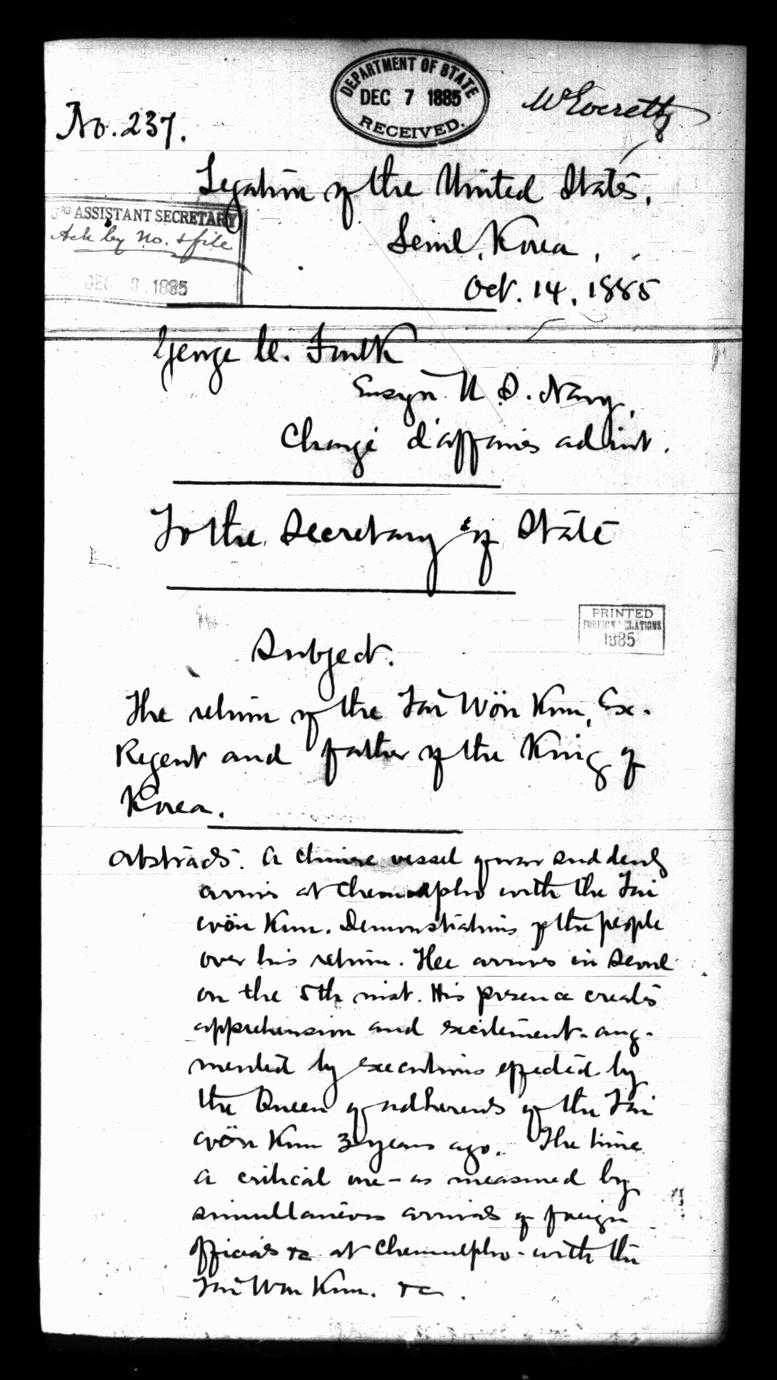 DEPARTMENT OF STATE
DEC 7 1885
RECEIVED.
W Everett
No. 237.
Legation of the United States,
Seoul, Korea,
Oct. 14, 1885
3RD ASSISTANT SECRETARY
Ack by No. & file
DEC 9 1885
George C. Foulk
Ensign U. S. Navy,
Chargé d'affaires ad int.
To the Secretary of State
PRINTED
FOREIGN RELATIONS
1885
Subject.
The return of the Tai Wön Kun, Ex-
Regent and father of the King of
Korea.
Abstract. A Chinese vessel of war suddenly
arrives at Chemulpho with the Tai
wön Kun. Demonstrations of the people
over his return. Hee arrives in Seoul
on the 5th inst. His presence creates
apprehension and excitement - aug-
mented by executions effected by
the Queen of adherents of the Tai
wön Kun 3 years ago. The time
a critical one - as measured by
simultaneous arrivals of foreign
officials &c at Chemulpho - with the
Tai Won Kun. &c.